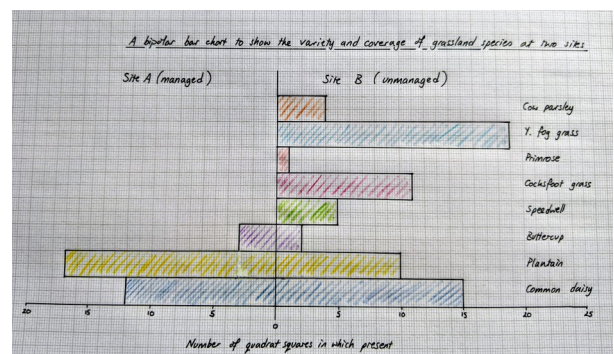 A bipolar bar chart to show the variety and coverage of grassland species at two sites
Site A (managed) Site B (unmanaged)
Cow parsley
Y. fog grass
Primrose
Cocksfoot grass
Speedwell
Buttercup
Plantain
Common daisy
20 15 10 5 0 5 10 15 20 25
Number of quadrat squares in which present